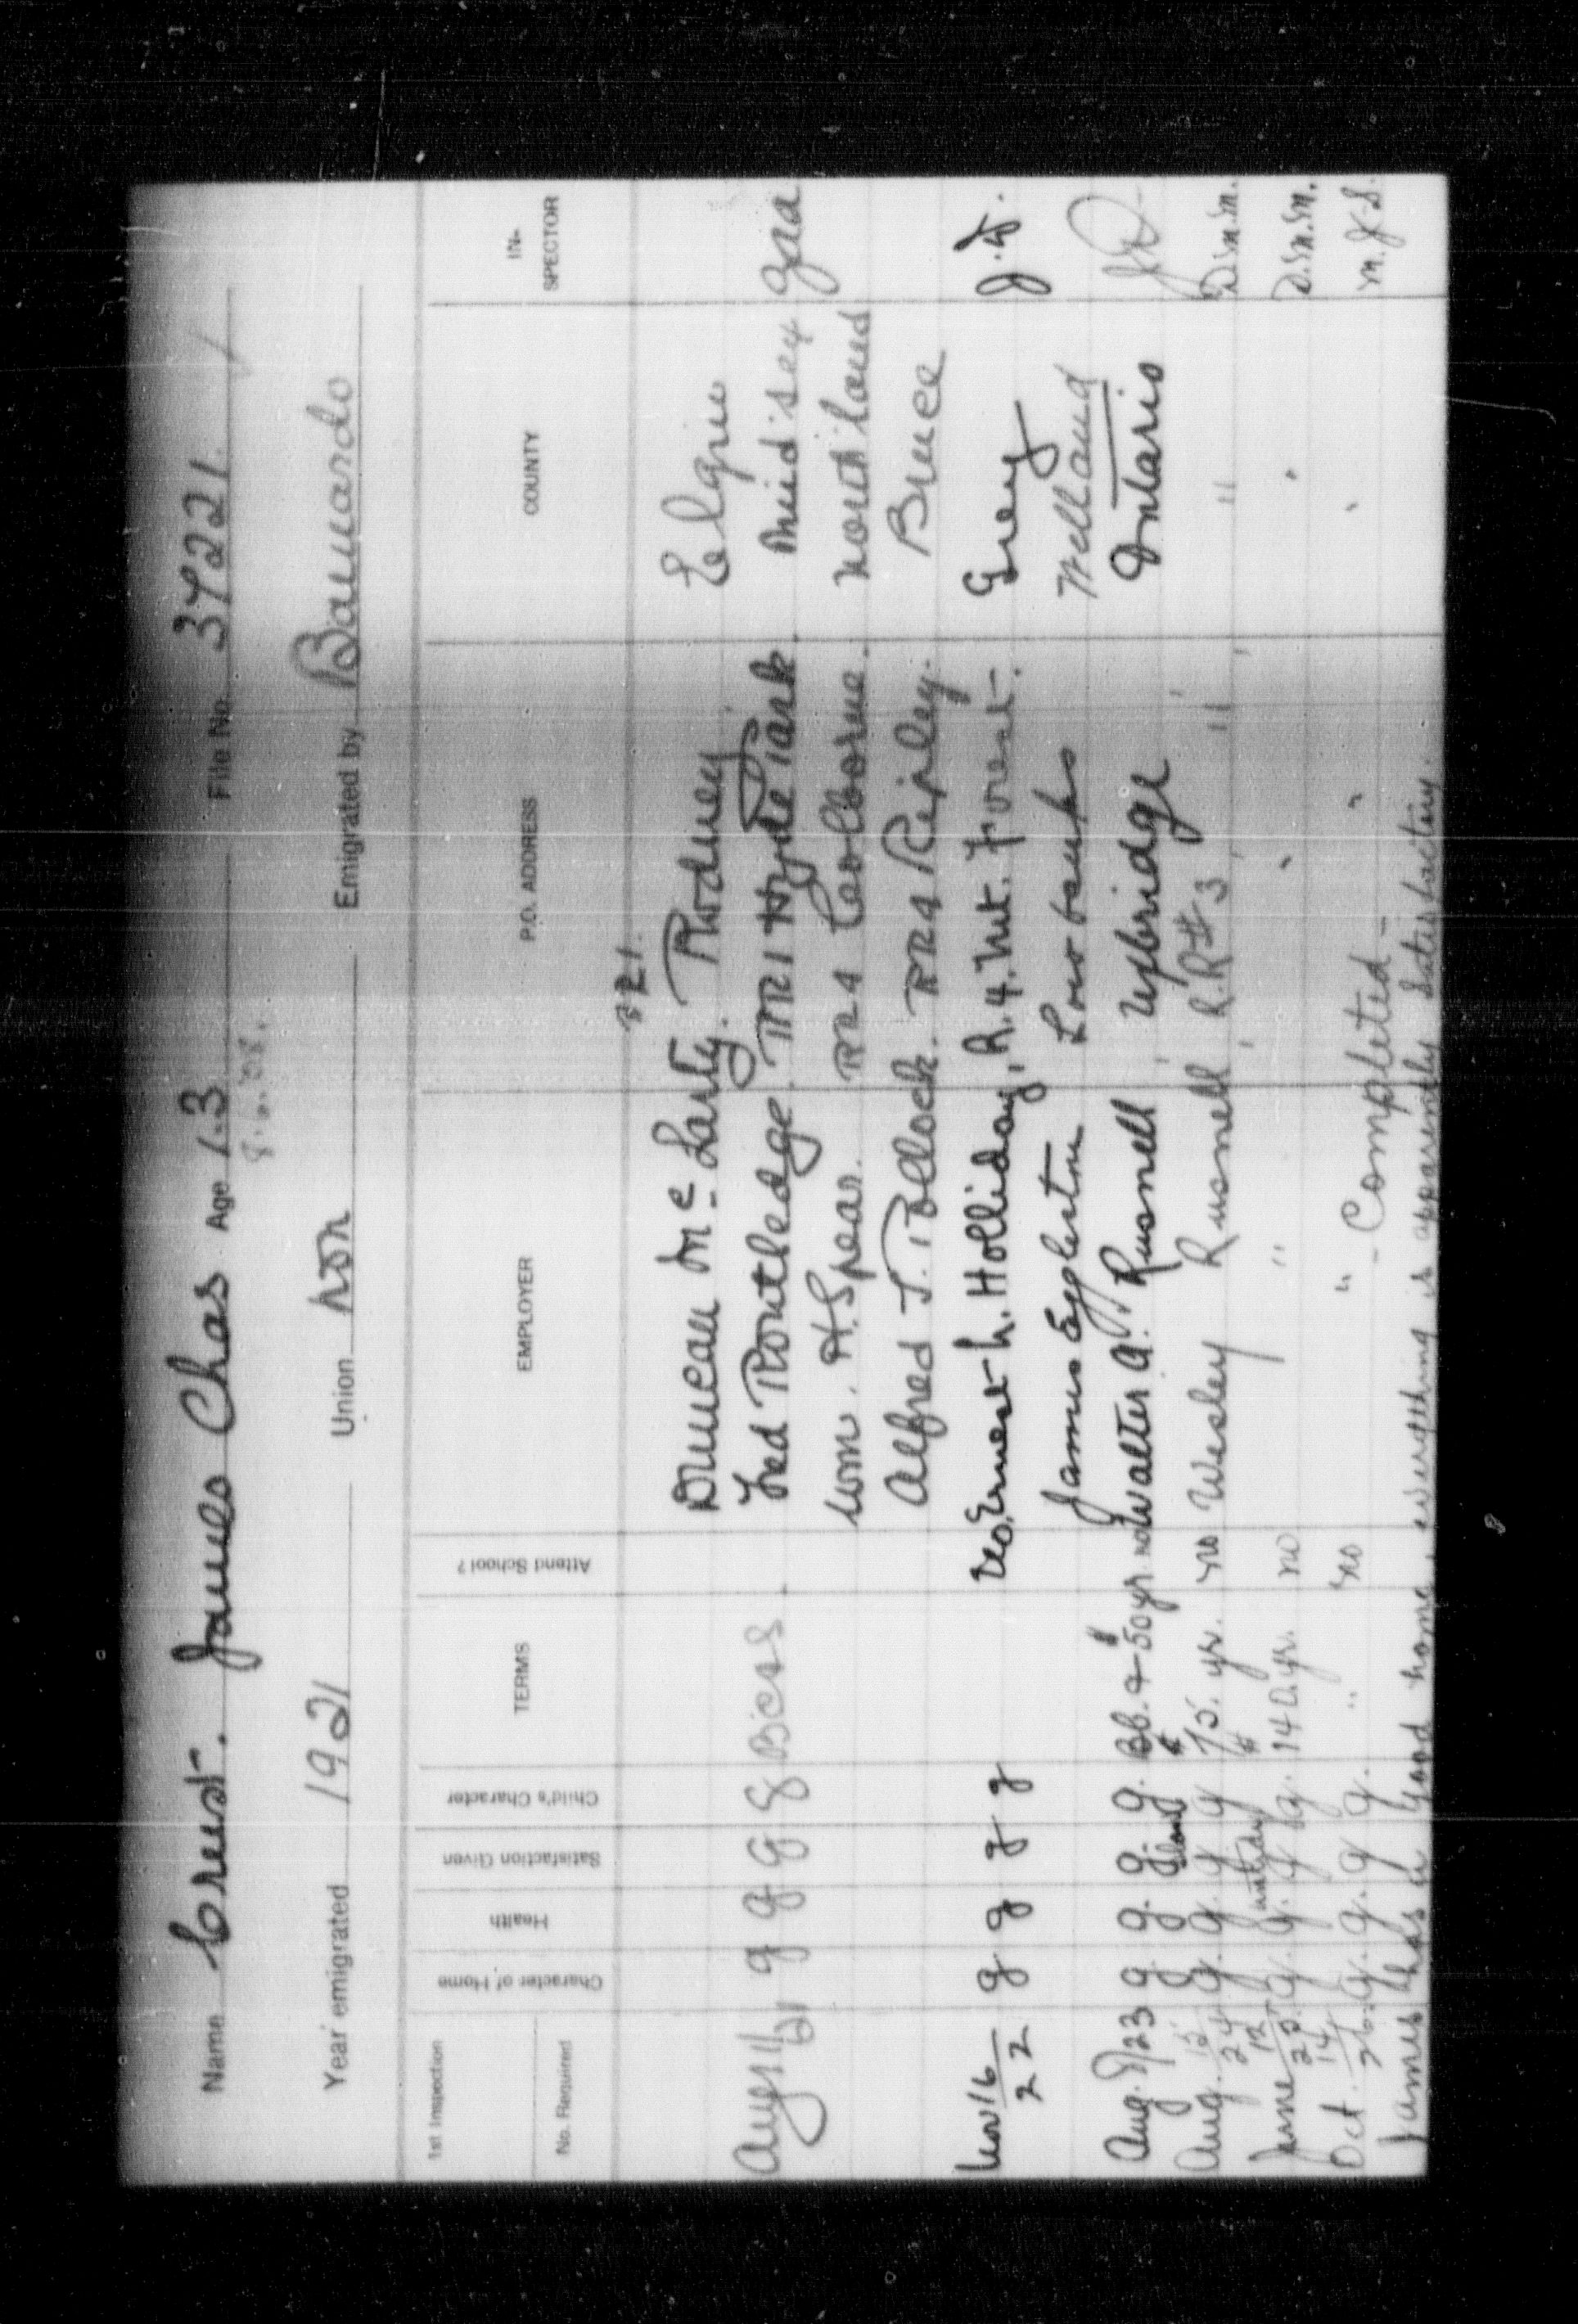 Name Crust. James Chas Age 13 File No. 37221
8.2.08.
Year emigrated 1921 Union non Emigrated by Barnardo
1st Inspection
No. Required
Character of Home Health Satisfaction Given Child's Character TERMS Attend School? EMPLOYER P.O. ADDRESS COUNTY IN-SPECTOR
Duncan McLarty. Rodney Elgin
Aug 16/21 g g g g BC&S Fred Routledge. RR1 Hyde Park. Mid'sex
Wm. H. Spear. RR4 Colborne. North'land
Alfred J. Pollock. RR4 Ripley. Bruce
Nov 16/22 g g g g Yes. Ernest L. Holliday, R. 4. Mt. Forest. Grey J.F.
James Eggleton Lowbanks Welland
Aug. 8/23 g g. g. g. Bb. & $50 yr no Walter A. Rusnell Uxbridge Ontario
Aug. 15/24 g. g. g slow g $75. yr. no Wesley Rusnell R.R#3 " " D.M.M.
June 12/25. g. g. g untidy g. $140. yr. no " " " D.M.M.
Oct. 14/26. g. g. g g. " no " " " M.J.S.
- Completed -
James has a good home, everything is apparently satisfactory.